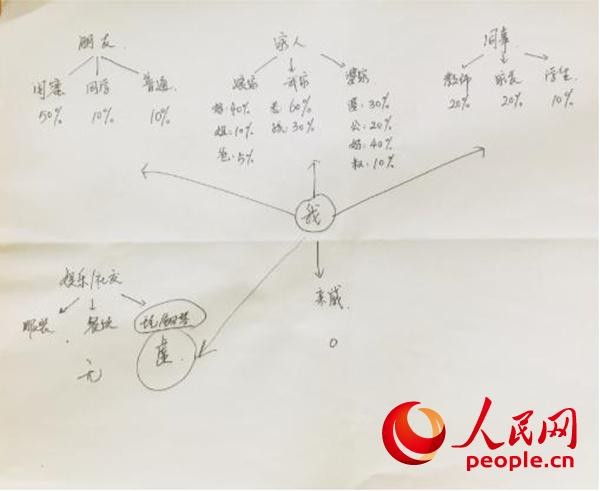 朋友
家人
同事
闺蜜 同学 普通
50% 10% 10%
娘家 婆家
妈:40%
姐:10%
爸:5%
60%
30%
婆:30%
公:20%
妈:40%
10%
教师 家长 学生
20% 20% 10%
我
娱乐/社交
服装 餐饮
无
虚
亲戚
0
人民网
people.cn